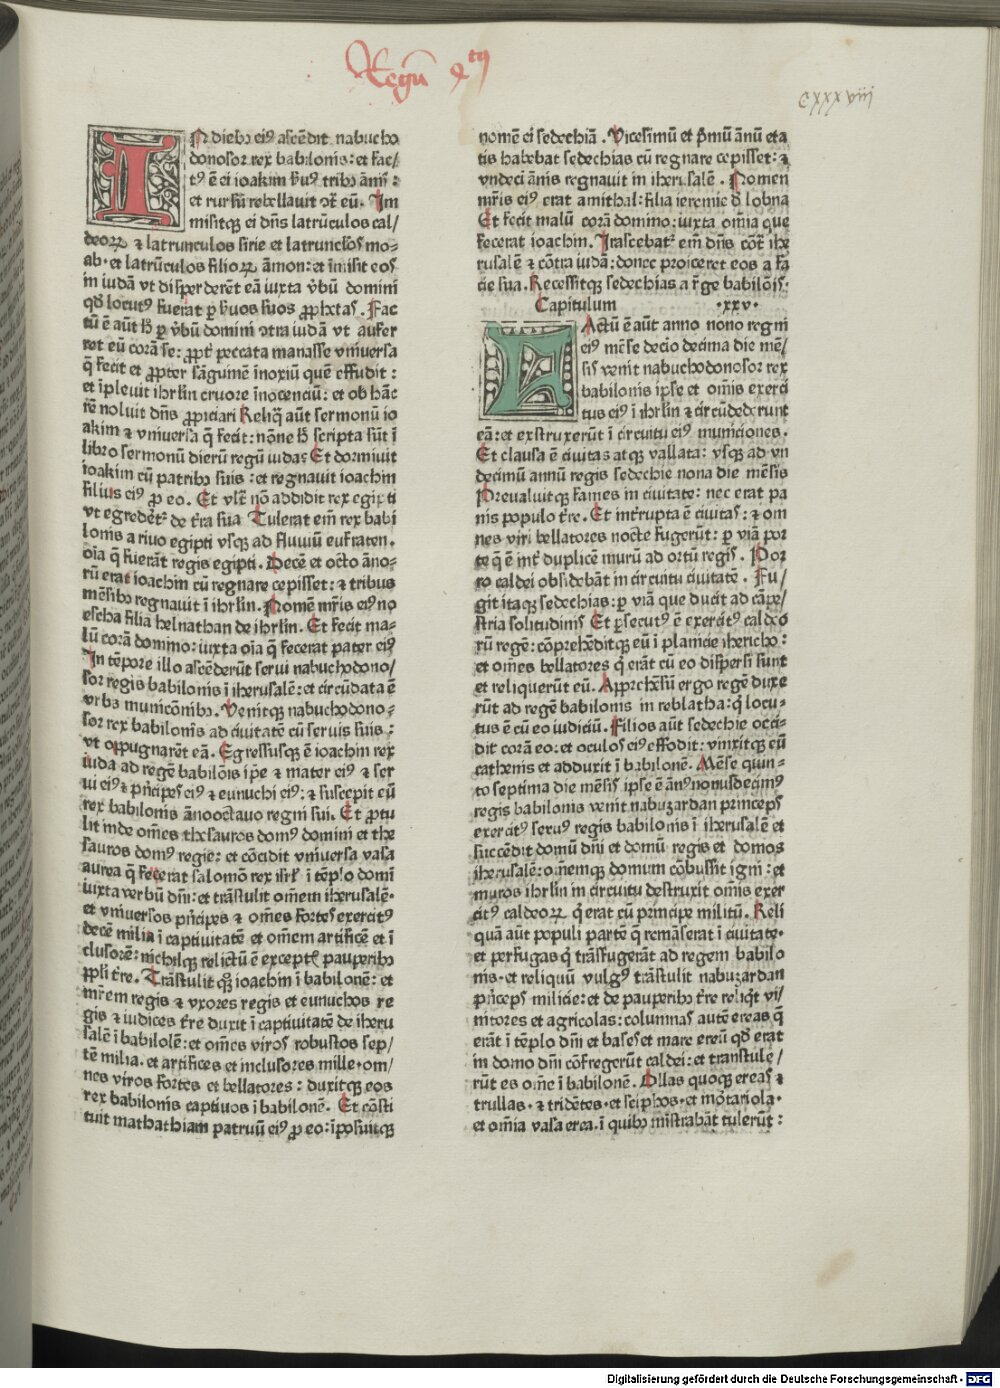 Regũ 4tꝯ
cxxxviii
IN diebꝯ eiꝰ ascẽdit nabucho
donosor rex babilonis: et fac/
tꝰ ẽ ei ioakim ẜuꝰ tribꝯ ãnis:
et rursũ rebellavit ↄ̃t̃ eũ. Im
misitqꝫ ei dñs latrũculos cal/
deoꝝ ⁊ latrunculos sirie et latrunc̃los mo-
ab. et latrũculos filioꝝ ãmon: et ĩmisit eos
in iudã vt disperderẽt eã iuxta ṽbũ domini
qđ locutꝰ fuerat ꝑ ẜuos suos ꝓphetas. Fac
tũ ẽ aũt h̃ ꝑ ṽbũ domini ↄtra iudã vt aufer
ret eũ corã se: ꝓpt̃ peccata manasse vniversa
q̃ fecit et ꝓpter sãguinẽ inoxiũ quẽ effudit:
et ĩplevit ihrl̃in cruore ĩnocenciũ: et ob hãc
rẽ noluit dñs ꝓpiciari Reliq̃ aũt sermonũ io
akim ⁊ vniversa q̃ fecit: nõne h̃ scripta sũt ĩ
libro sermonũ dierũ regũ iudas Et dormivit
ioakim cũ patribꝯ suis: et regnavit ioachim
filius eiꝰ ꝓ eo. Et vlt̃ nõ addidit rex egipti
vt egredẽt̃ de t̃ra sua Tulerat em̃ rex babi
lonis a rivo egipti vsqꝫ ad fluviũ eufraten.
oĩa q̃ fuerãt regis egipti. Decẽ et octo ãno-
rũ erat ioachim cũ regnare cepisset: ⁊ tribus
mẽsibꝯ regnavit ĩ ihrl̃in. Nomẽ mr̃is eiꝰ no
escha filia helnathan de ihrl̃in. Et fecit ma-
lũ corã dommo: iuxta oĩa q̃ fecerat pater eiꝰ
In tẽpore illo ascẽderũt servi nabuchodono/
sor regis babilonis ĩ iherusalẽ: et circũdata ẽ
vrbs municõnibꝯ. Venitqꝫ nabuchodono-
sor rex babilonis ad civitatẽ cũ servis suis:
vt oppugnarẽt eã. Egressusqꝫ ẽ ioachim rex
iuda ad regẽ babilõis ip̃e ⁊ mater eiꝰ ⁊ ser
ui eiꝰ ⁊ pñcipes eiꝰ ⁊ eunuchi eiꝰ: ⁊ suscepit eũ
rex babilonis ãno octavo regni sui. Et ꝓtu
lit inde om̃es thesauros domꝰ domini et the
sauros domꝰ regie: et cõcidit vniversa vasa
aurea q̃ fecerat salomõ rex isrl̃ ĩ tẽplo domĩ
iuxta verbũ dñi: et trãstulit om̃em iherusalẽ.
et vniversos pñcipes ⁊ om̃es fortes exercitꝰ
decẽ milia ĩ captivitatẽ et om̃em artificẽ et ĩ
clusorẽ: nichilqꝫ relictũ ẽ except̃ pauperibꝯ
ꝓpl̃i t̃re. Trãstulit qꝫ ioachim ĩ babilonẽ: et
mr̃em regis ⁊ vxores regis et eunuchos re
gis ⁊ iudices t̃re duxit ĩ captivitatẽ de iheru
salẽ ĩ babilolẽ: et om̃es viros robustos sep/
tẽ milia. et artifices et inclusores mille. om/
nes viros fortes et bellatores: duxitqꝫ eos
rex babilonis captivos ĩ babilonẽ. Et cõsti
tuit mathathiam patruũ eiꝰ ꝓ eo: ĩposuitqꝫ
nomẽ ei sedechiã. Vicesimũ et p̃mũ ãnũ eta
tis habebat sedechias cũ regnare cepisset: ⁊
vndeci ãnis regnavit in iherusalẽ. Nomen
mr̃is eiꝰ erat amithal: filia ieremie đ lobna
Et fecit malũ corã dommo: iuxta om̃ia que
fecerat ioachim. Irascebat̃ em̃ dñs cõt̃ ihe
rusalẽ ⁊ cõtra iudã: donec proiceret eos a fa
cie sua. Recessitqꝫ sedechias a r̃ge babilõis.
Capitulum .xxv.
FActũ ẽ aũt anno nono regni
eiꝰ mẽse decio decima die mẽ/
sis venit nabuchodonosor rex
babilonis ipse et om̃is exerci
tus eiꝰ ĩ ihrl̃in ⁊ circũdederunt
eã: et exstruxerũt ĩ circuitu eiꝰ municiones.
Et clausa ẽ civitas atqꝫ vallata: vsqꝫ ad vn
decimũ annũ regis sedechie nona die mẽsis
Prevaluitqꝫ fames in civitate: nec erat pa
nis populo t̃re. Et int̃rupta ẽ civitas: ⁊ om
nes viri bellatores nocte fugerũt: ꝑ viã por
te q̃ ẽ int̃ duplicẽ murũ ad ortũ regis. Por
ro caldei obsidebãt in circuitu civitatẽ. Fu/
git itaqꝫ sedechias: ꝑ viã que ducit ad cãpe/
stria solitudinis Et ꝑsecutꝰ ẽ exercitꝰ caldeo
rũ regẽ: cõprehẽditqꝫ eũ ĩ planicie ihericho:
et om̃es bellatores q̃ erãt cũ eo dispersi sunt
et reliquerũt eũ. Appr̃chẽsũ ergo regẽ duxe
rũt ad regẽ babilonis in reblatha: q̃ locu-
tus ẽ cũ eo iudiciũ. Filios aũt sedechie occi-
dit corã eo: et oculos eiꝰ effodit: vinxitqꝫ eũ
cathenis et adduxit ĩ babilonẽ. Mẽse quin-
to septima die mẽsis ipse ẽ ãnꝰ nonusdecimꝰ
regis babilonis venit nabuzardan princeps
exercitꝰ servꝰ regis babilonis ĩ iherusalẽ et
succẽdit domũ dñi et domũ regis et domos
iherusalẽ: om̃emqꝫ domum cõbussit igni: et
muros ihrl̃in in circuitu destruxit om̃is exer
citꝰ caldeoꝝ q̃ erat cũ principe militũ. Reli
quã aũt populi partẽ q̃ remãserat ĩ civitate.
et perfugas q̃ trãsfugerãt ad regem babilo
nis. et reliquũ vulgꝰ trãstulit nabuzardan
pñceps milicie: et de pauperibꝯ t̃re reliq̃t vi/
nitores et agricolas: columnas autẽ ereas q̃
erãt ĩ tẽplo dñi et bases et mare ereũ qđ erat
in domo dñi cõfregerũt caldei: et transtule/
rũt es om̃e ĩ babilonẽ. Ollas quoqꝫ ereas ⁊
trullas. ⁊ tridẽtes. et sciphos. et mortariola.
et om̃ia vasa erea. ĩ quibꝯ mĩstrabãt tulerũt:
Digitalisierung gefördert durch die Deutsche Forschungsgemeinschaft - DFG